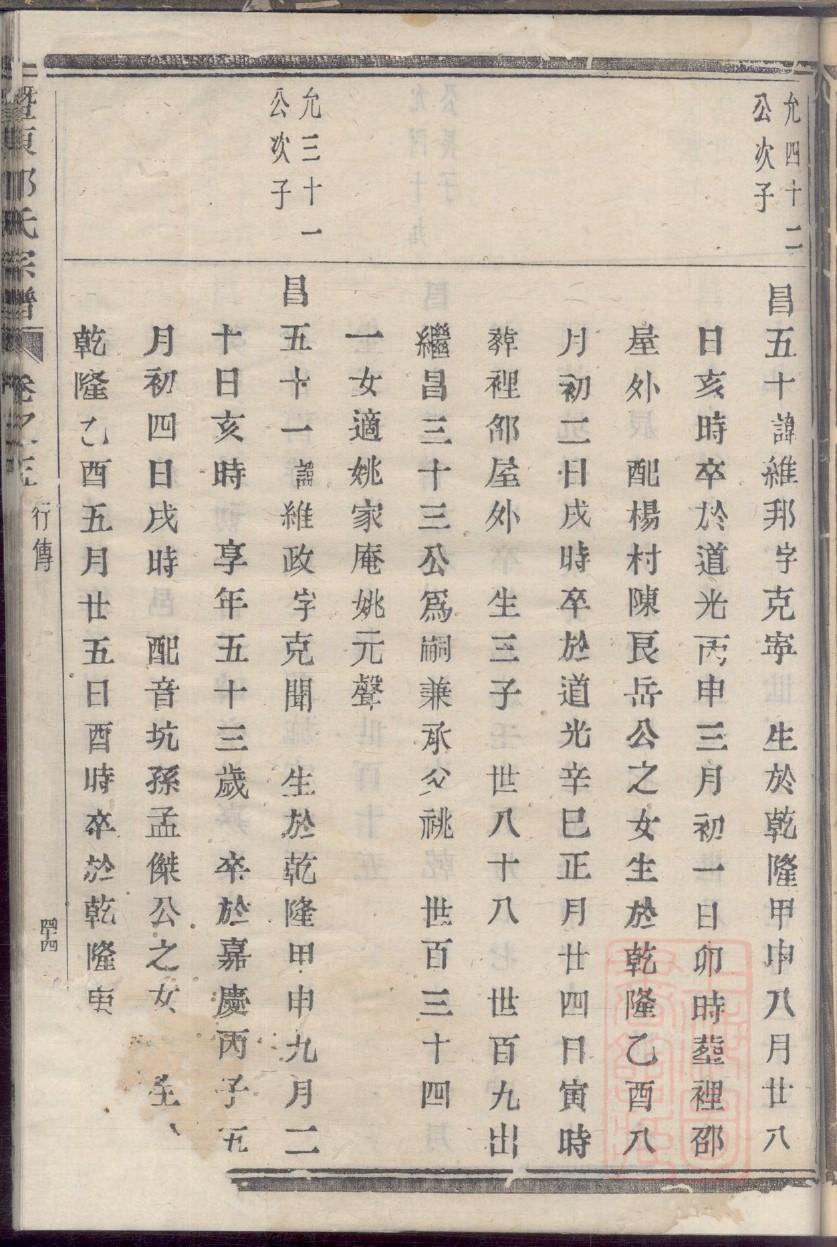 允四十二
公次子
昌五十諱維邦字克寧 生於乾隆甲申八月廿八
日亥時卒於道光丙申三月初一日卯時塟裡邵
屋外 配楊村陳艮岳公之女生於乾隆乙酉八
月初二日戌時卒於道光辛巳正月廿四日寅時
葬裡邵屋外 生三子 世八十八 世百九出
繼昌三十三公爲嗣兼承父祧 世百三十四
一女適姚家庵姚元聲
允三十一
公次子
昌五十一諱維政字克聞 生於乾隆甲申九月二
十日亥時 享年五十三歲 卒於嘉慶丙子五
月初四日戌時 配音坑孫孟傑公之女 生
乾隆乙酉五月廿五日酉時卒於乾隆
暨東邵氏宗譜 卷之 行傳 四十四